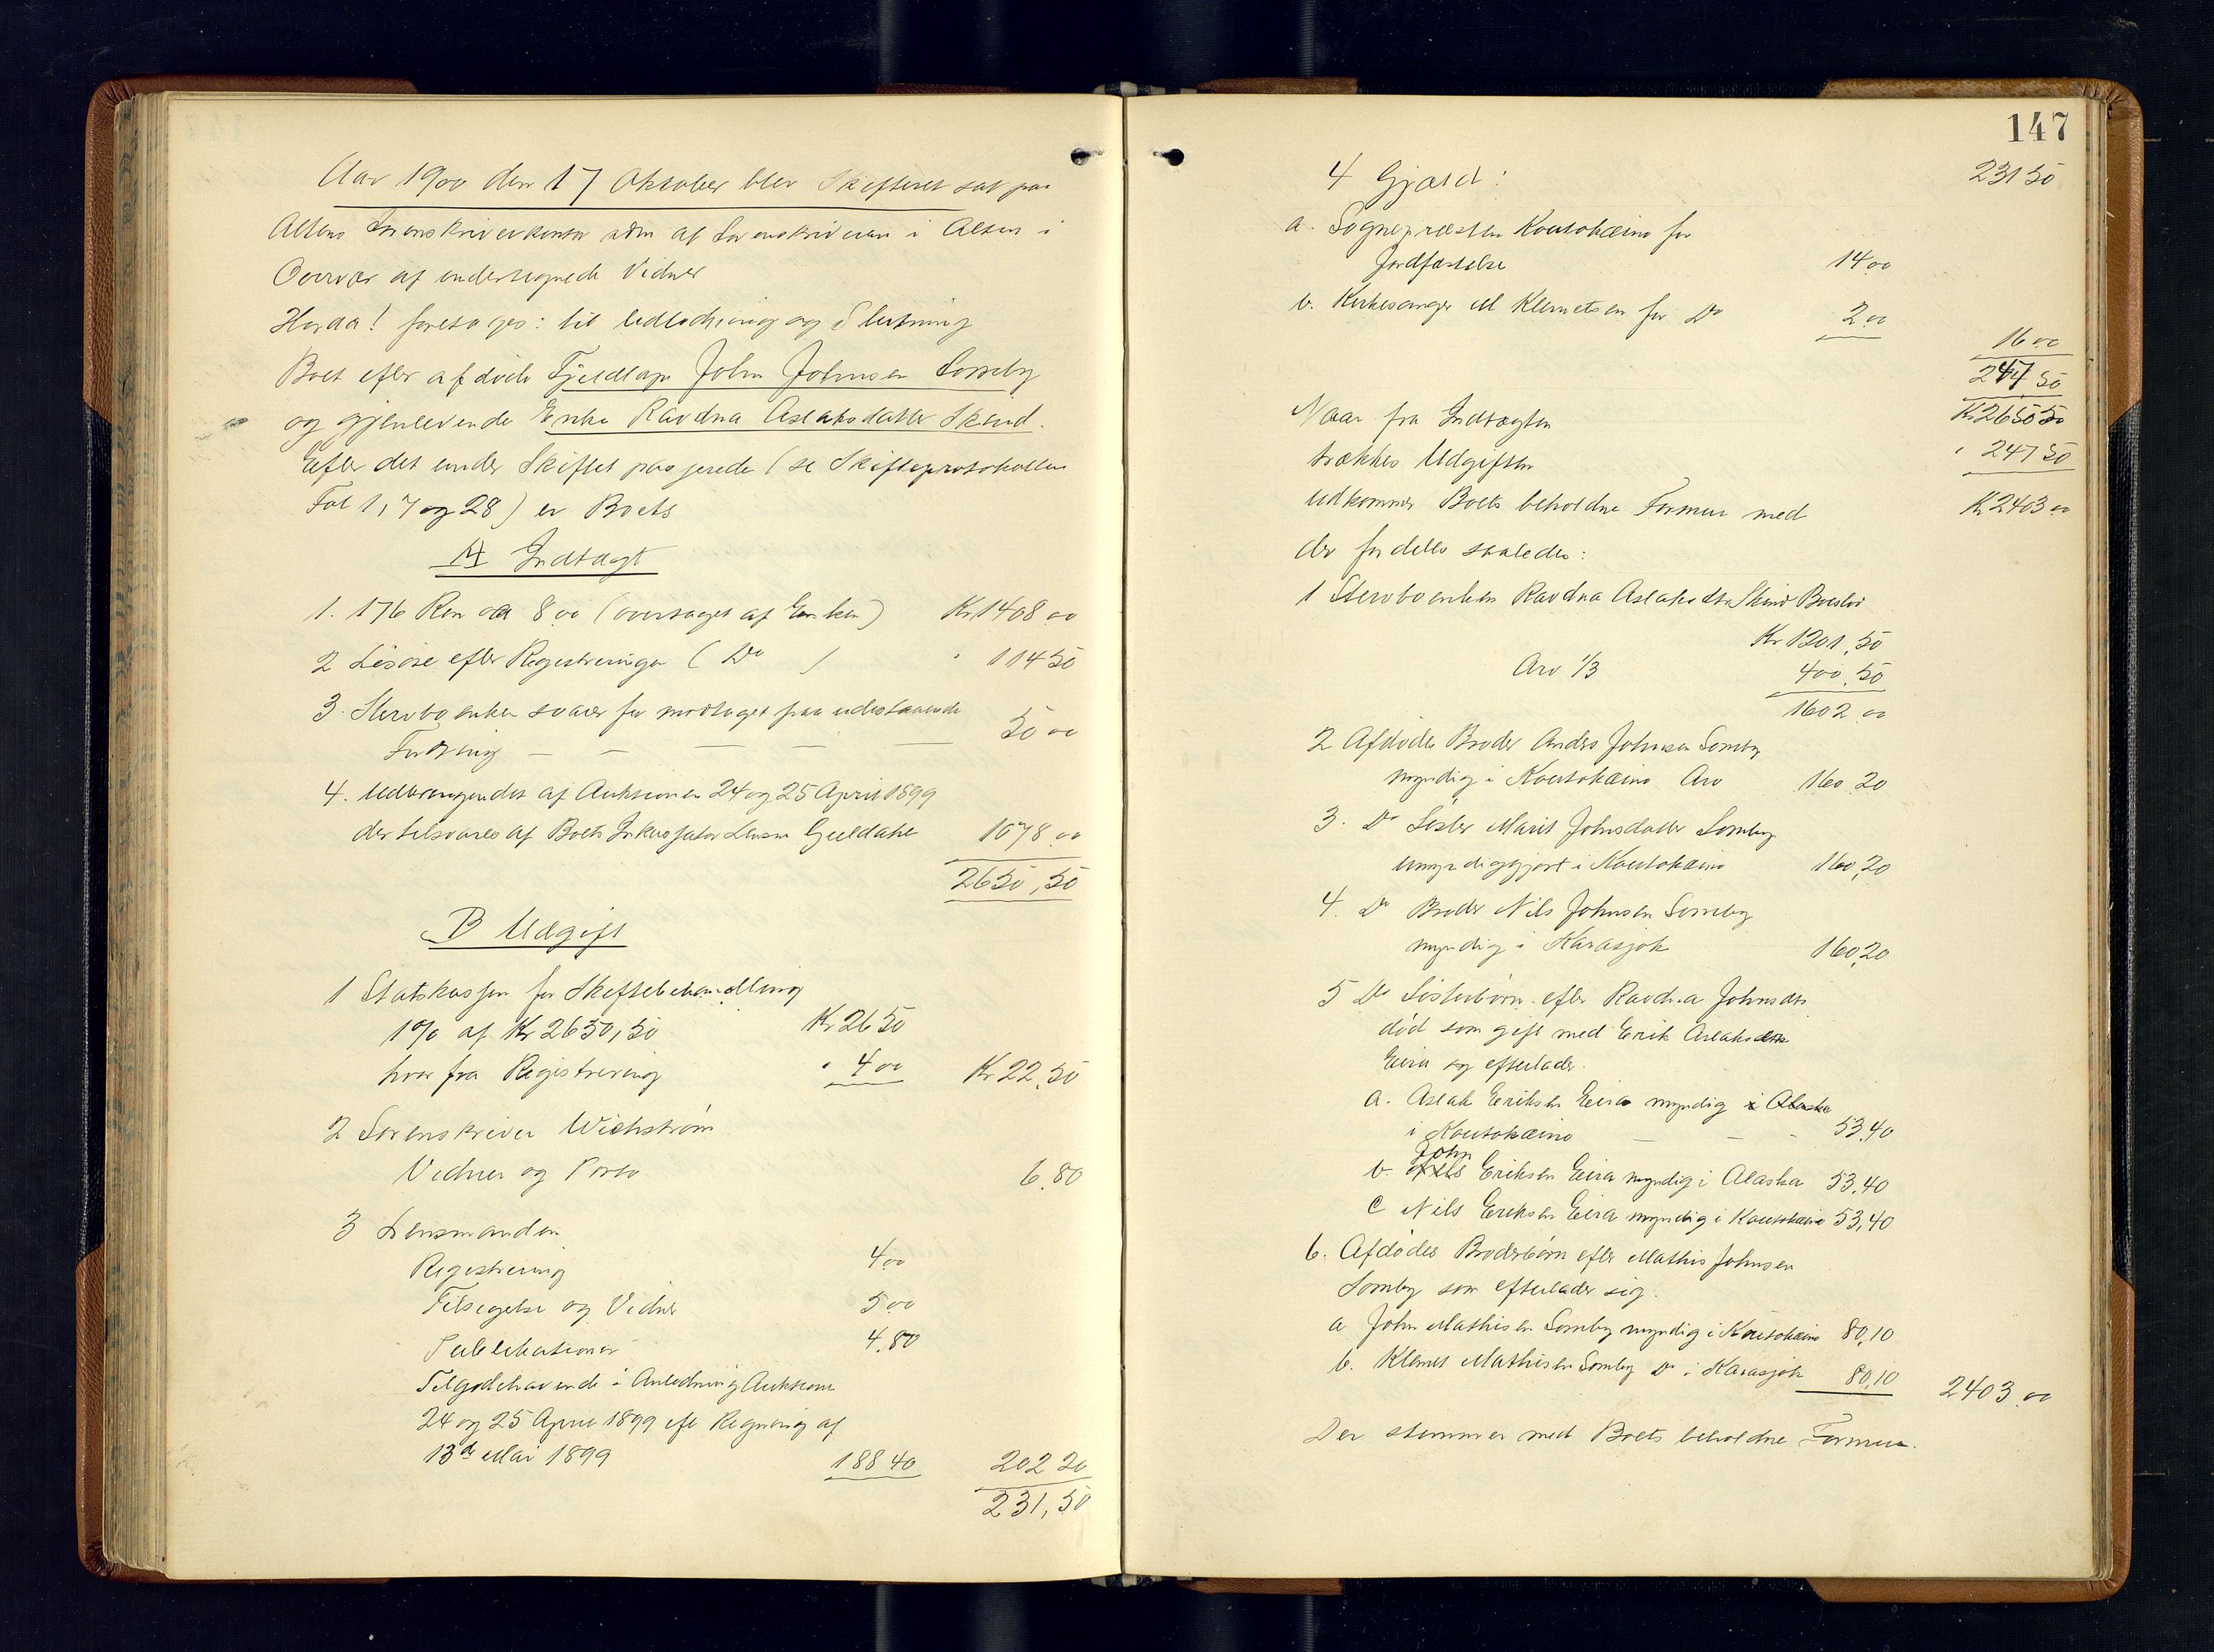 Aar 1900 den 17 Oktober blev Skifteret sat paa
Altens Sorenskriverkontor adm af Sorenskriveren i Alten i
Overvær af undertegnede Vidner
Hvorda! foretoges: til Udlodning og Slutning
Boet efter afdøde Fjeldlap John Johnsen Somby
og gjenlevende Enke Ravdna Aslaksdatter Skind.
Efter det under Skiftet passerede (se Skifteprotokollen
Fol 1, 7 og 28) er Boets
A Indtægt
1. 176 Ren a 8.00 (overtaget af Enken) Kr 1408.00
2 Løsøre efter Registreringen ( Do ) " 114 50
3. Stervboenken svarer for modtaget paa udestaaende
Fordring — — — — — 50 00
4. Udbringendet af Auktionen 24 og 25 April 1899
der tilsvares af Boets Inkassator Lensm Guldahl 1078.00
2650,50
B Udgift
1 Statskassen for Skiftebehandling
1% af Kr 2650,50 Kr 26 50
hvor fra Registrering " 4 00 Kr 22.50
2 Sorenskriver Wichstrøm
Vidner og Porto 6.80
3 Lensmanden
Registrering 4 00
Tilsigelse og Vidner 5 00
Publikationer 4.80
Tilgodehavende i Anledning Auktion
24 og 25 April 1899 eft Regning af
13de Mai 1899 188 40 202 20
231,50
147
4 Gjæld: 231 50
a. Sognepræsten Koutokæino for
Jordfæstelse 14.00
b. Kirkesanger M Klemetsen for Do 2.00
16 00
247 50
Naar fra Indtægten Kr 2650 50
trækkes Udgifter " 247 50
udkommer Boets beholdne Formue med Kr 2403.00
der fordeles saaledes:
1 Stervboenken Ravdna Aslaksdtr Skind Boeslod
Kr 1201,50
Arv 1/3 400.50
1602.00
2 Afdødes Broder Anders Johnsen Somby
myndig i Koutokæino Arv 160.20
3. Do Søster Marit Johnsdatter Somby
umyndiggjort i Koutokæino 160,20
4. Do Broder Nils Johnsen Somby
myndig i Karasjok 160.20
5 Do Søsterbørn efter Ravdna Johnsdtr
død som gift med Erik Aslaksen
Eira og efterlader.
a. Aslak Eriksen Eira myndig i Alaska
i Koutokæino — — - 53.40
John
b. Nils Eriksen Eira myndig i Alaska 53.40
c Nils Eriksen Eira myndig i Koutokæino 53,40
6. Afdødes Broderbørn efter Mathis Johnsen
Somby som efterlader sig.
a John Mathisen Somby myndig i Koutokæino 80,10
b. Klemet Mathisen Somby Do i Karasjok 80,10 2403.00
Der stemmer med Boets beholdne Formue.